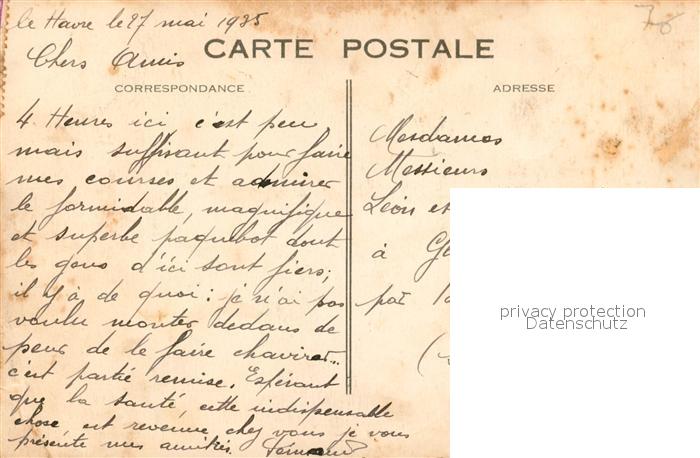 le Havre le 27 mai 1935
Chers Amis
CARTE POSTALE
CORRESPONDANCE
4 Heures ici c'est peu
mais suffisant pour faire
mes courses et admirer
le formidable, magnifique
et superbe paquebot dont
les gens d'ici sont fiers;
il y à de quoi: je n'ai pas
voulu monter dedans de
peur de le faire chavirer...
c'est partie remise. Espérant
que la santé, cette indispensable
chose est revenue chez vous je vous
présente mes amitiés. Fernand
ADRESSE
Mesdames
Messieurs
Léon et
à
privacy protection
Datenschutz